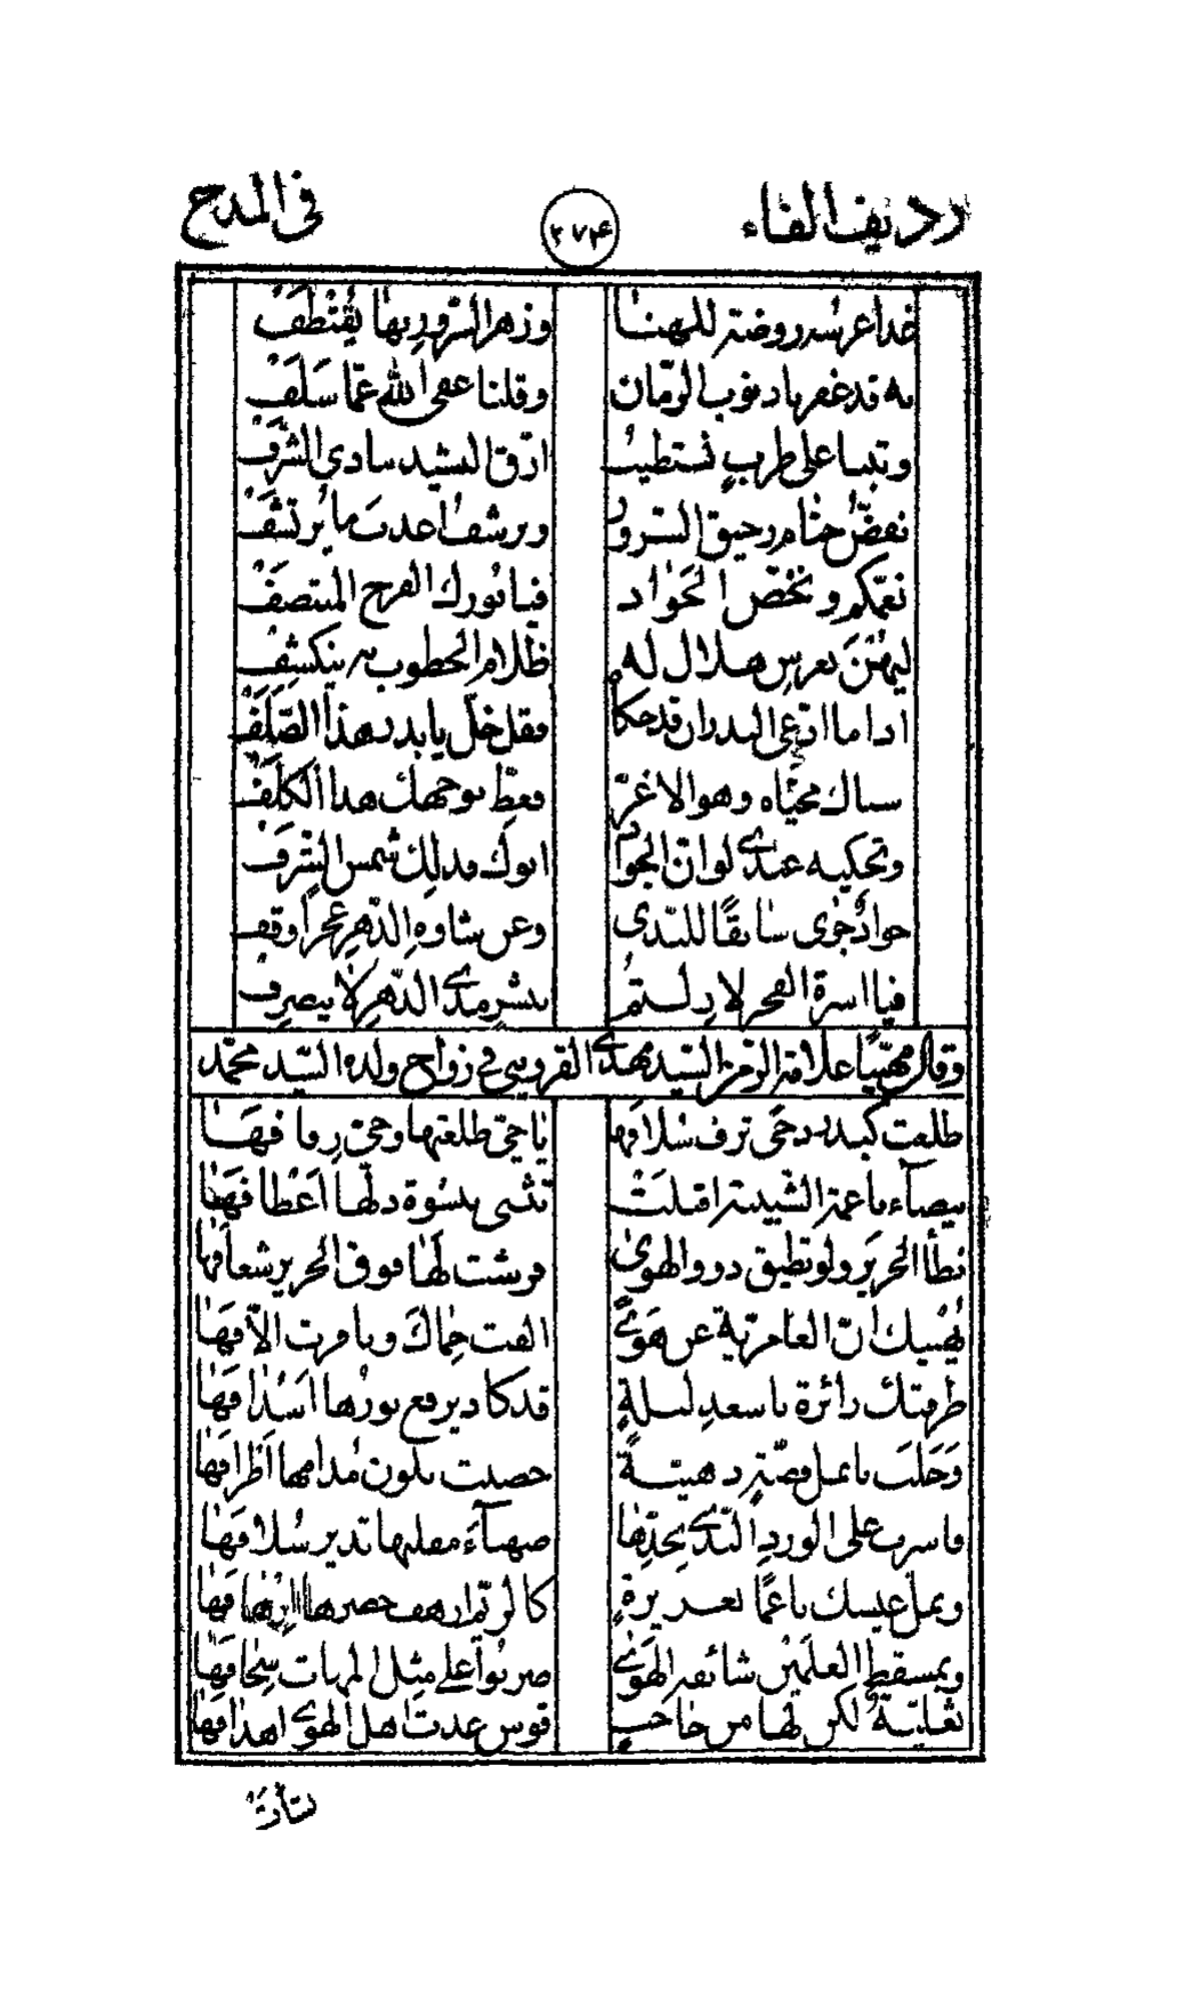 رديف الفاء ٢٧۴ في المدح
غدا عرسه روضة للهنا وزهر السرور بها يُقتَطَف
به قد غفرنا ذنوب الزمان وقلنا عفى الله عمّا سَلَف
وتبنا على طربٍ نستطيبُ ادق النشيد بنادي الشرف
نفضّ ختام رحيق السرور ونرشف اعذب ما يُرتشف
نعمّكم ونخصّ الجواد فيا بورك الفرح المنتصف
ليهنَنَ بعرس هلال له ظلام الخطوب به ينكشف
اذا ما ادّعى البدر ان قد حكاه فقل خلّ يا بدر هذا الصَلَف
سناك محيّاه وهو الاغرّ فغطّ بوجهك هذا الكَلَف
وتحكيه عندي لو انّ الجواد ابوك فذلك شمس الشرف
جوادٌ جرى سابقًا للندى وعن شاوه الدهر عجزًا وقف
فيا اسرة الفخر لا زلتمُ ببشرٍ مدى الدهر لا ينصرف
وقال مهنّيًا علامة الزمن السيّد مهدي القزويني في زواج ولده السيّد محمّد
طلعت كبدر دجى تزف سُلافَها يا حيّ طلعتها وحيّ زِفافَهَا
بيضاء ناعمة الشبيبة اقبلت تثنى بنشوة دلّها اَعْطافَها
تطأ الحرير ولو تطيق ذوو الهوى فرشت لها فوق الحرير شغافها
يُهنيك انّ العامريّة عن هَوًى الفت حِماك وفارقت اُلّافَها
طرقتك زائرة بأسعد ليلة قد كاد يرفع نورها اَسْدافَها
وَجَلَت بأنمل فضّةٍ ذهبيّةً خضبت بلون مُدامها اَطرافَها
فاشرب على الورد الذي بخدّها صهباءَ مقلتها تدير سُلافَها
وبمل عينيك ناعمًا بغريرة كالرئم ارهف خصرها
وبمسقط العلمين شائقه الهوى ضربوا على مثل المهاة سِجافَها
ثعليّةٌ لكن لها من حاجبٍ قوس غدت اهل الهوى اهدافَها